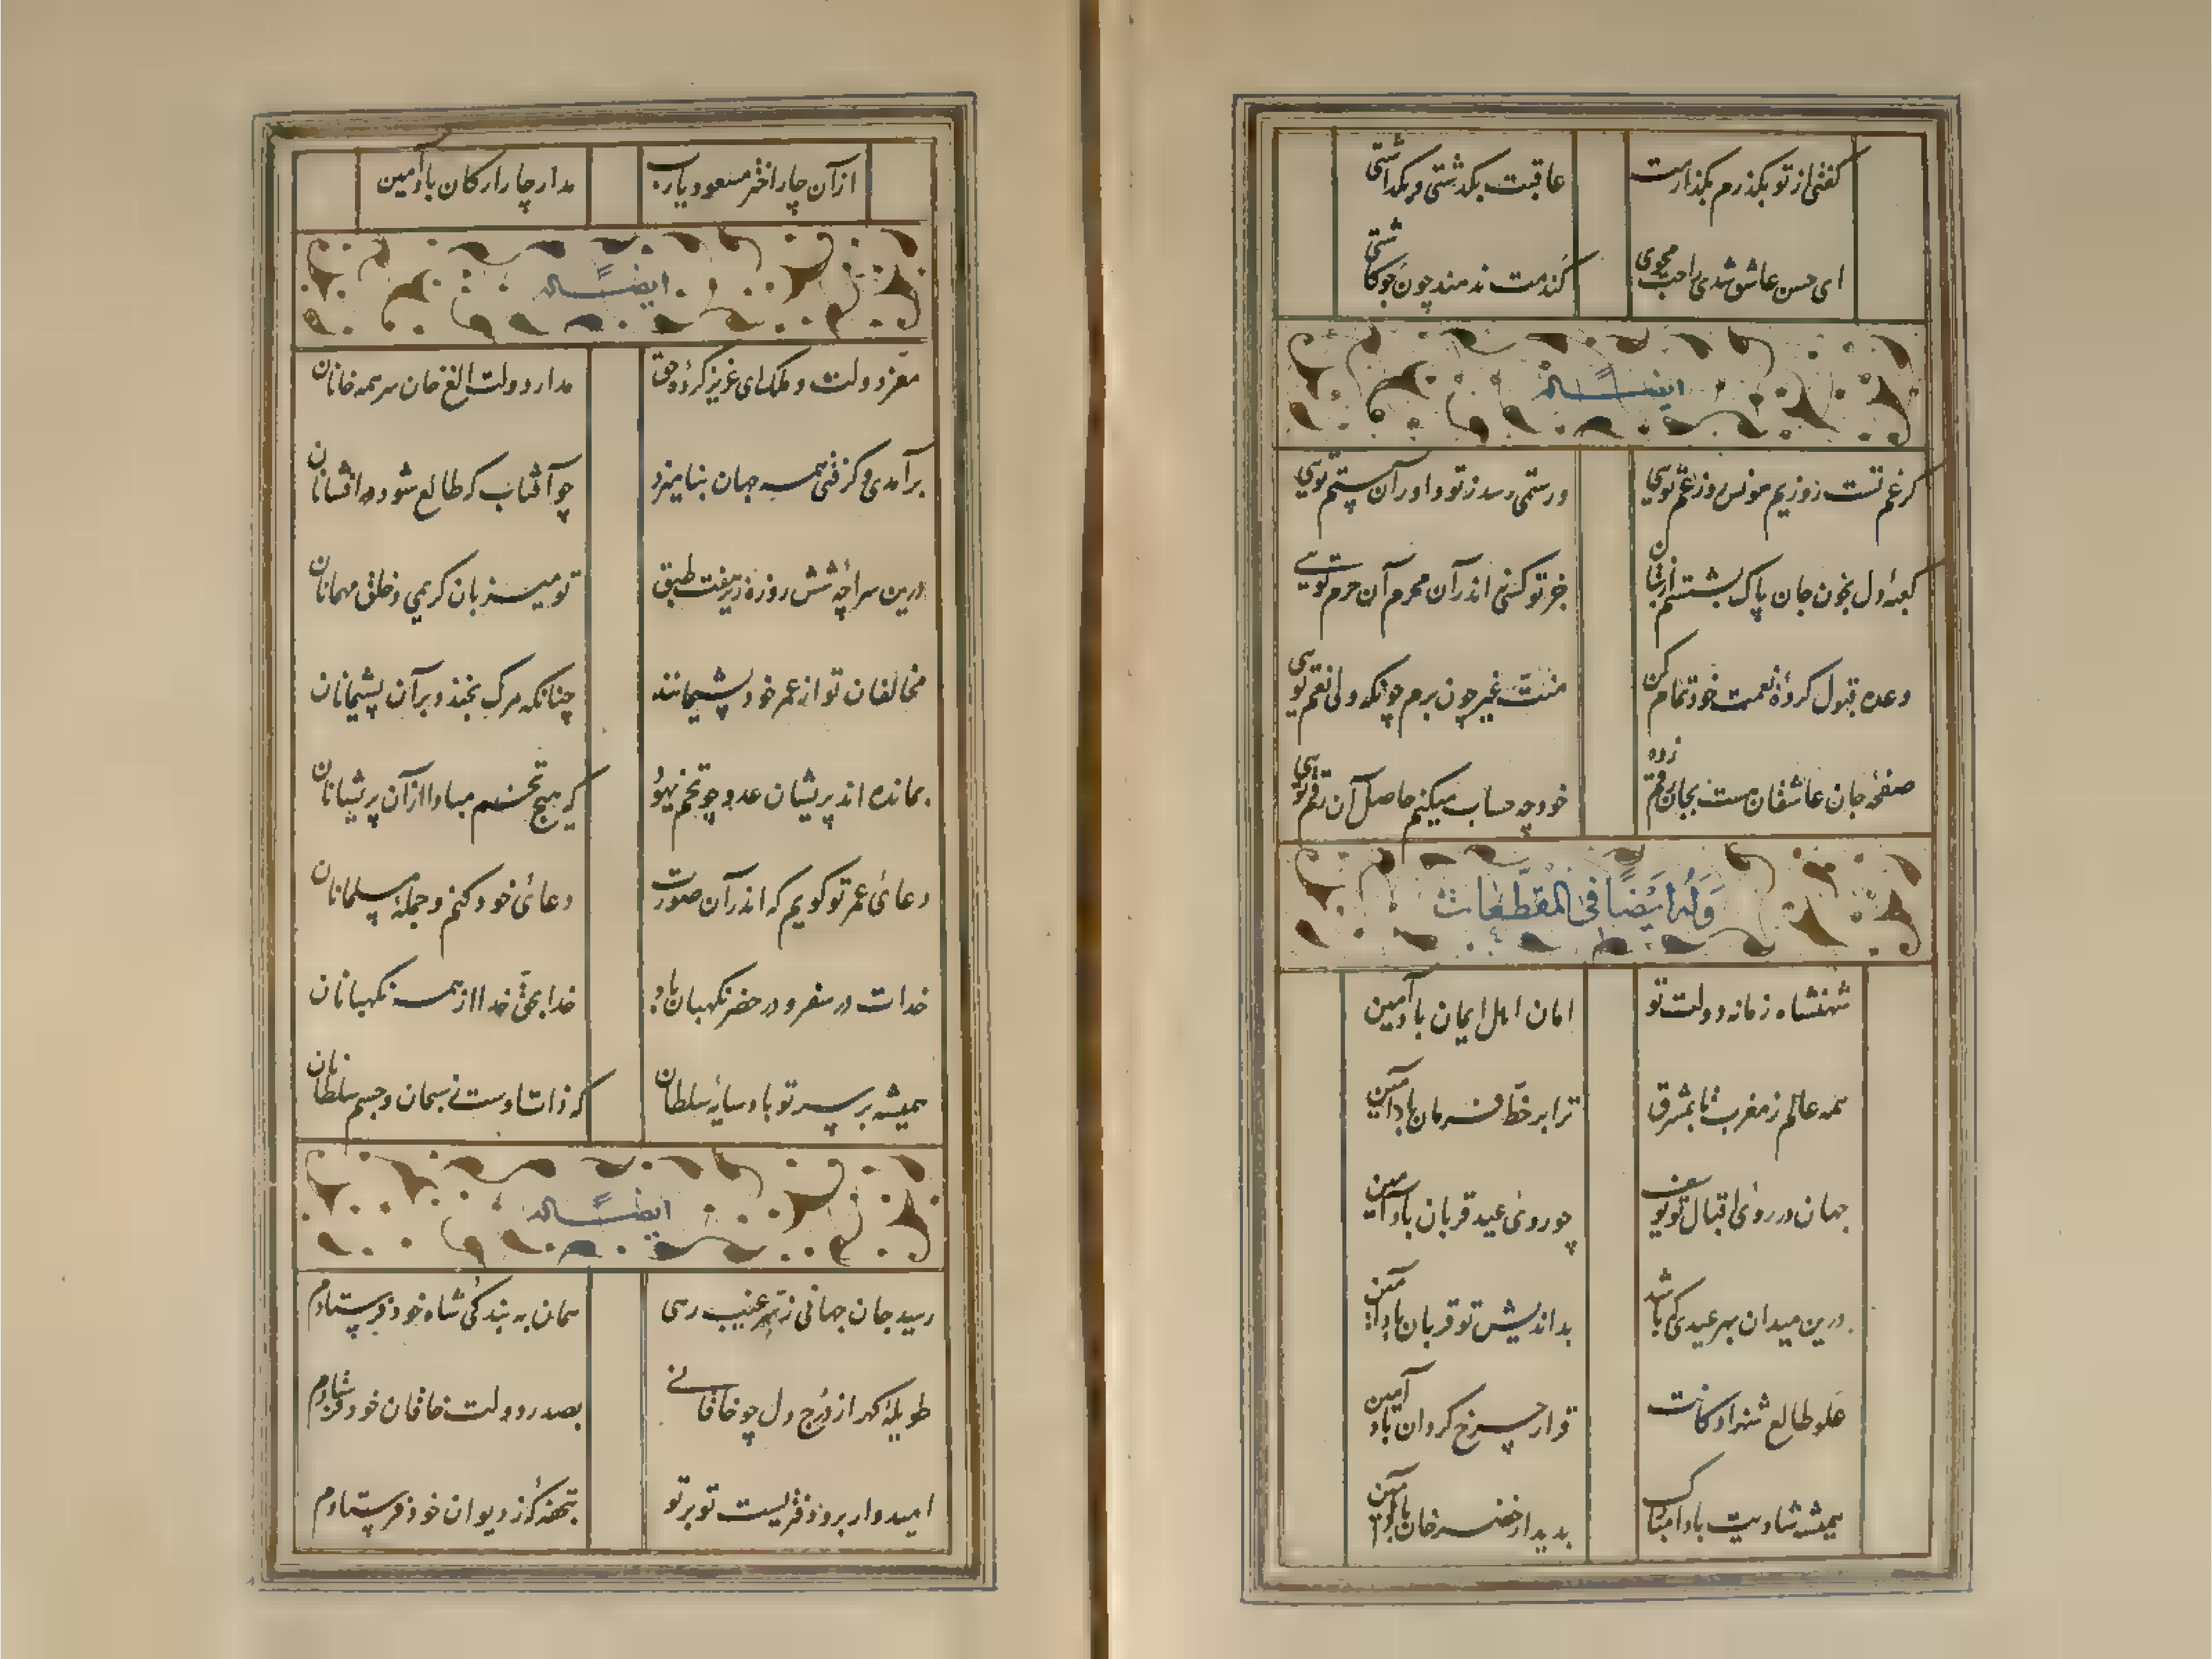 گفتی از تو بگذرم بگذارمت
عاقبت بگذشتی و بگذاشتی
ای حسن عاشق شدی راحت مجوی
گندمت ندهند چون جو کاشتی
ایضاً له
گر غم تست روزیم مونس روز غم تویی
ور ستمی رسد ز تو داور آن ستم تویی
کعبهٔ دل بخون جان پاک بشستم
جز تو کسی اندر آن محرم آن حرم تویی
وعده قبول کردهٔ نعمت خود تمام کن
منت غیر چون برم چونکه ولی نعم تویی
صفحهٔ جان عاشقان هست بجان رقم زده
خود چه حساب میکنم حاصل آن رقم تویی
وله ایضاً فی المقطعات
شهنشاه زمانه دولت تو
امان اهل ایمان باد آمین
همه عالم ز مغرب تا بمشرق
ترا بر خط فرمان باد آمین
جهان در روی اقبال تو
چو روی عید قربان باد آمین
درین میدان بهر عیدی که باشد
بداندیش تو قربان باد آمین
علو طالع
چرخ گردان باد آمین
همیشه شادیت باد
بدیدار خضر خان باد آمین
از آن چار اختر مسعود یارب
مدار چار ارکان باد آمین
ایضاً له
معز دولت و ملک ای عزیز کردهٔ حق
مدار دولت الغ خان سر همه خانان
برآمدی و گرفتی همه جهان بنامیزد
چو آفتاب که طالع شود
درین سراچهٔ شش روزهٔ هفت طبق
تو میزبان کریمی و خلق مهمانان
مخالفان تو از عمر خود پشیمانند
چنانکه مرگ بخندد بر آن پشیمانان
بمانده اند پریشان عدو چو تخم
که هیچ تخم مبادا از آن پریشانان
دعای عمر تو گویم که اندر آن صورت
دعای خود کنم و جملهٔ مسلمانان
خدات در سفر و در حضر نگهبان باد
خدا بحق خدا از همه نگهبانان
همیشه بر سر تو باد سایهٔ سلطان
که ذات اوست سلطانان
ایضاً له
رسید جان جهانی ز غیب
همان به بندگی شاه خود فرستادم
طویلهٔ گهر از درج دل چو خاقانی
بصدر دولت خاقان خود فرستادم
امیدوار
بتحفه کز دیوان خود فرستادم